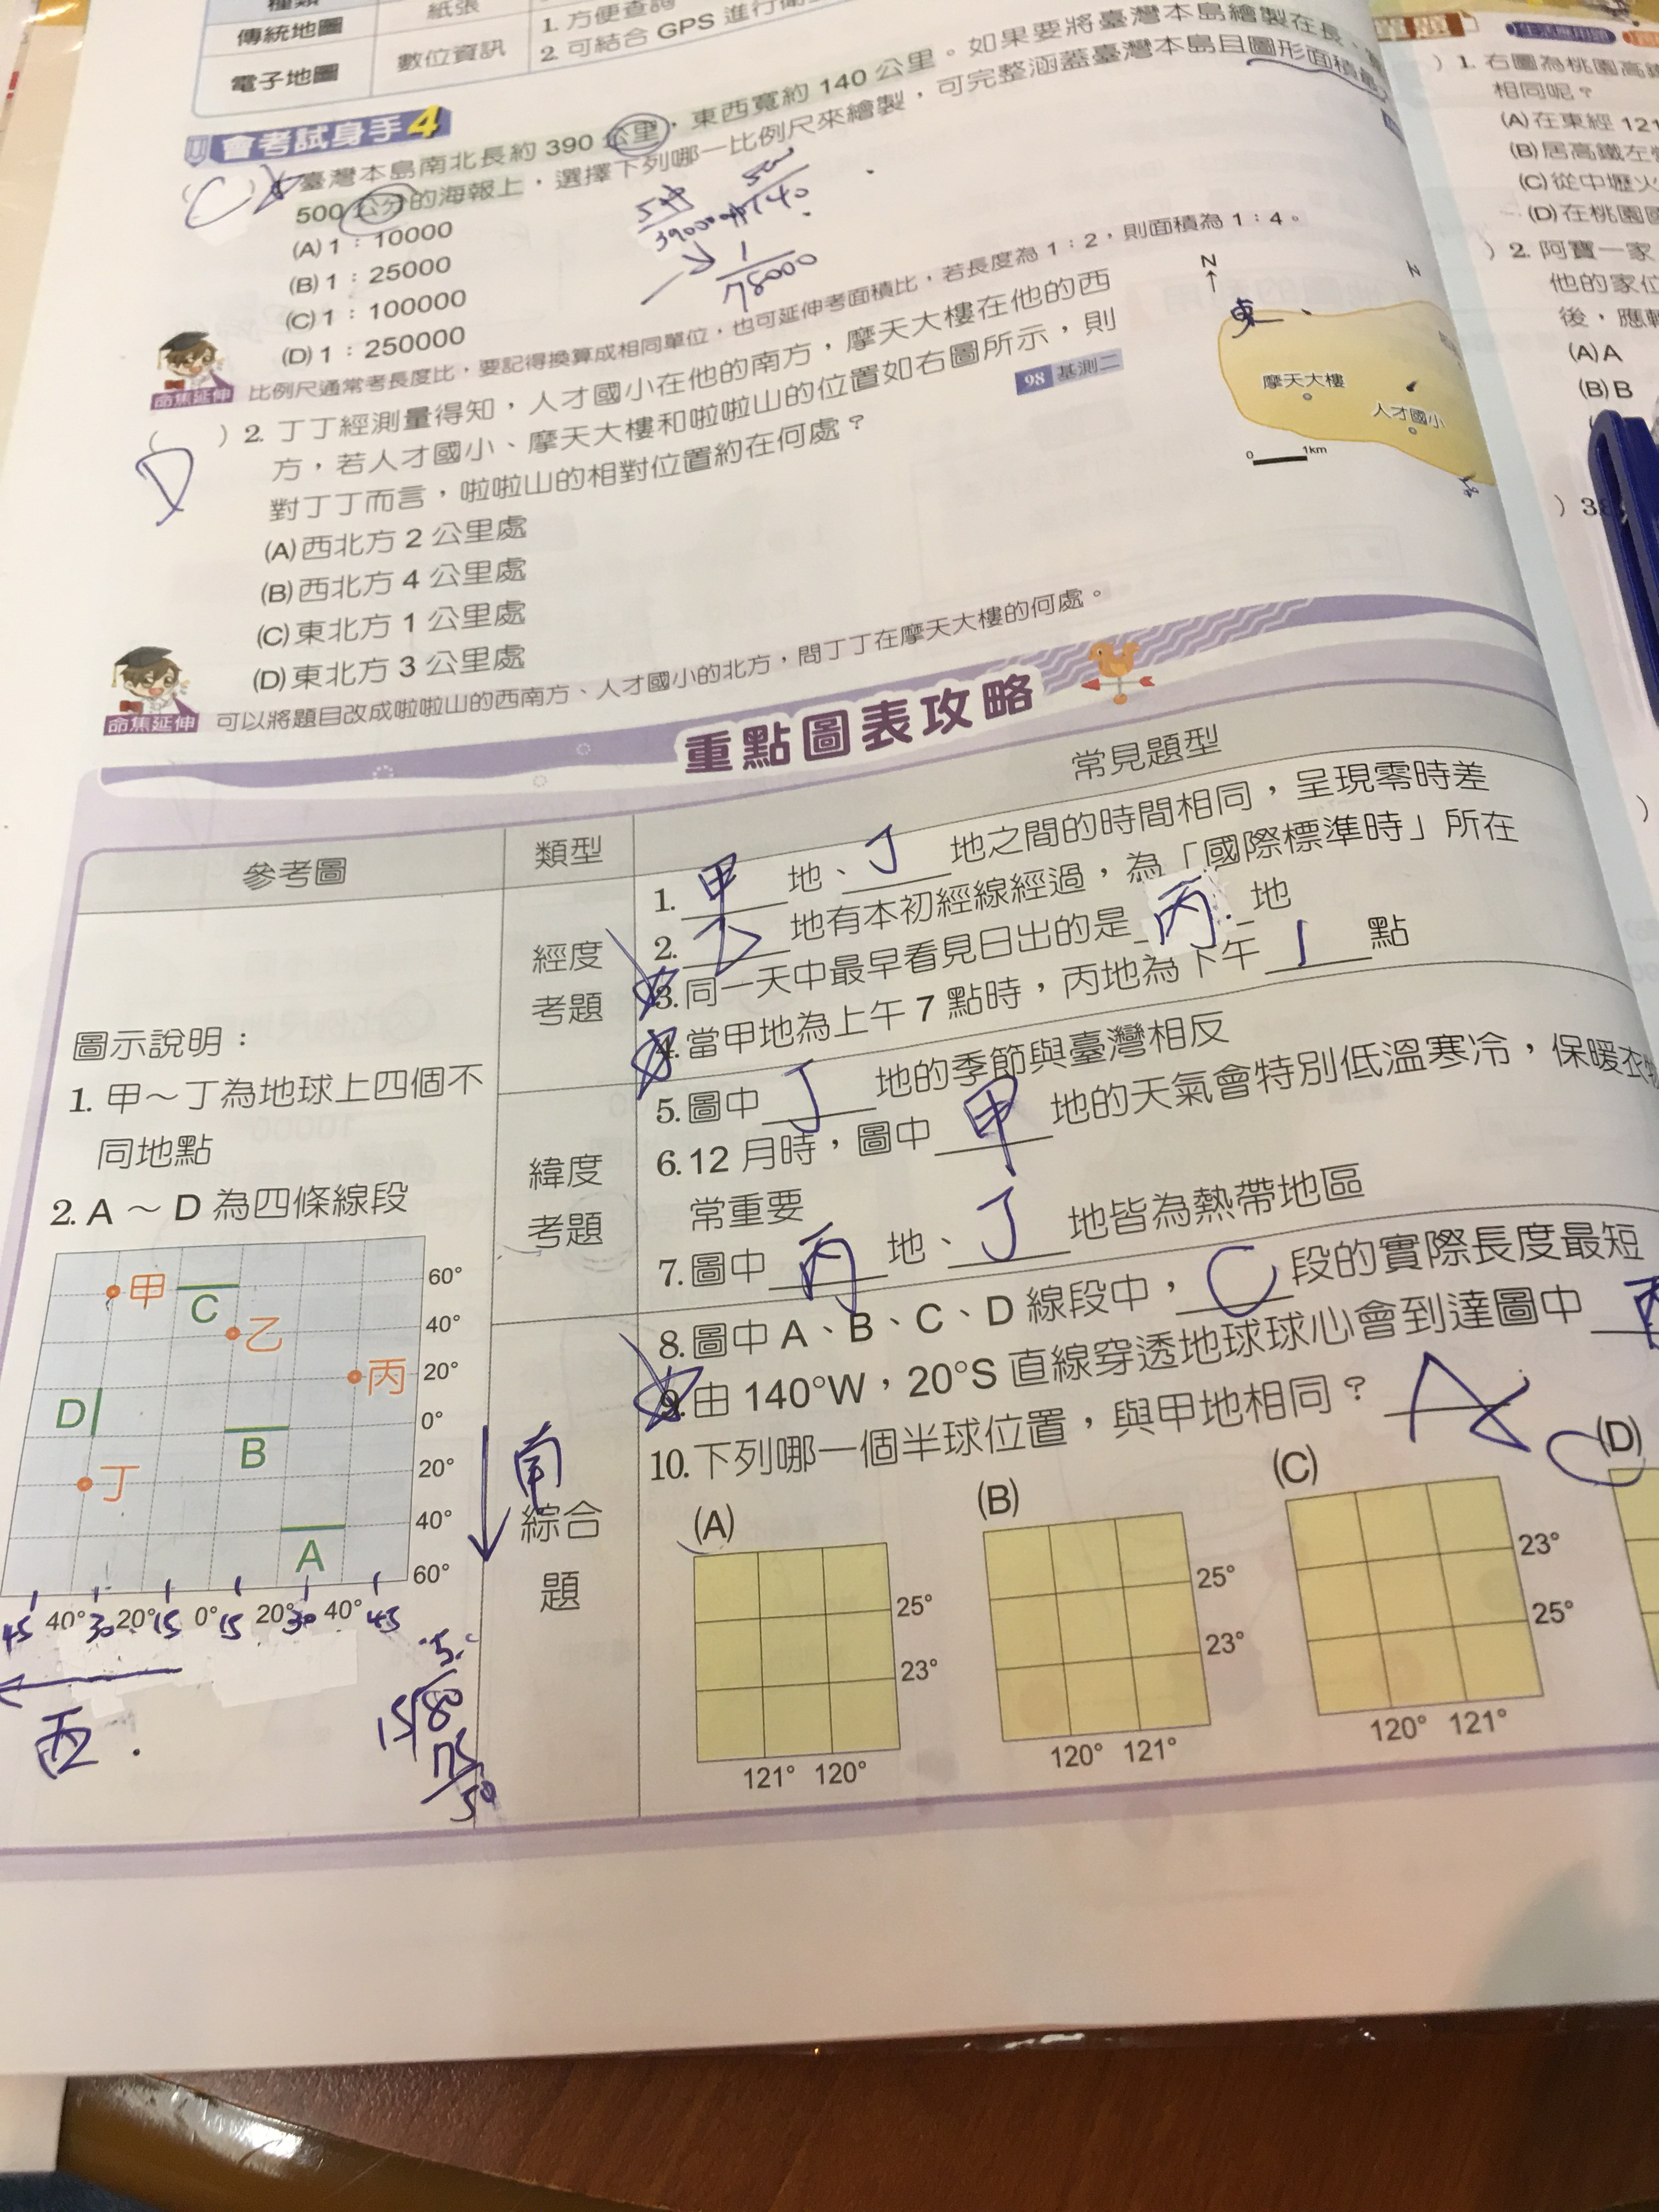 種類
紙張
傳統地圖
數位資訊
1. 方便查詢
電子地圖
2. 可結合 GPS 進行衛
會考試身手4
(C) 臺灣本島南北長約 390 公里，東西寬約 140 公里。如果要將臺灣本島繪製在長、
500 公分的海報上，選擇下列哪一比例尺來繪製，可完整涵蓋臺灣本島且圖形面積最
(A) 1：10000
(B) 1：25000
(C) 1：100000
(D) 1：250000
1
78000
命焦延伸 比例尺通常考長度比，要記得換算成相同單位，也可延伸考面積比，若長度為 1：2，則面積為 1：4。
( D ) 2. 丁丁經測量得知，人才國小在他的南方，摩天大樓在他的西
方，若人才國小、摩天大樓和啦啦山的位置如右圖所示，則
對丁丁而言，啦啦山的相對位置約在何處？
98 基測二
(A) 西北方 2 公里處
(B) 西北方 4 公里處
(C) 東北方 1 公里處
(D) 東北方 3 公里處
N
東
摩天大樓
人才國小
0 1km
命焦延伸 可以將題目改成啦啦山的西南方、人才國小的北方，問丁丁在摩天大樓的何處。
重點圖表攻略
參考圖
類型
常見題型
圖示說明：
1. 甲～丁為地球上四個不
同地點
2. A ～ D 為四條線段
甲
C
乙
丙
D
B
丁
A
60°
40°
20°
0°
20°
40°
60°
45 40° 30 20° 15 0° 15 20° 30 40° 45
南
西
經度
考題
1. 甲 地、丁 地之間的時間相同，呈現零時差
2. 乙 地有本初經線經過，為「國際標準時」所在
3. 同一天中最早看見日出的是 丙 地
4. 當甲地為上午 7 點時，丙地為下午 1 點
緯度
考題
5. 圖中 丁 地的季節與臺灣相反
6. 12 月時，圖中 甲 地的天氣會特別低溫寒冷，保暖衣物
常重要
7. 圖中 丙 地、丁 地皆為熱帶地區
綜合
題
8. 圖中 A、B、C、D 線段中，C 段的實際長度最短
9. 由 140°W，20°S 直線穿透地球球心會到達圖中 丙
10. 下列哪一個半球位置，與甲地相同？ A
(A)
25°
23°
121° 120°
(B)
25°
23°
120° 121°
(C)
23°
25°
120° 121°
(D)
) 1. 右圖為桃園高鐵
相同呢？
(A) 在東經 121
(B) 居高鐵左
(C) 從中壢火
(D) 在桃園國
) 2. 阿寶一家
他的家位
後，應
(A) A
(B) B
) 3.